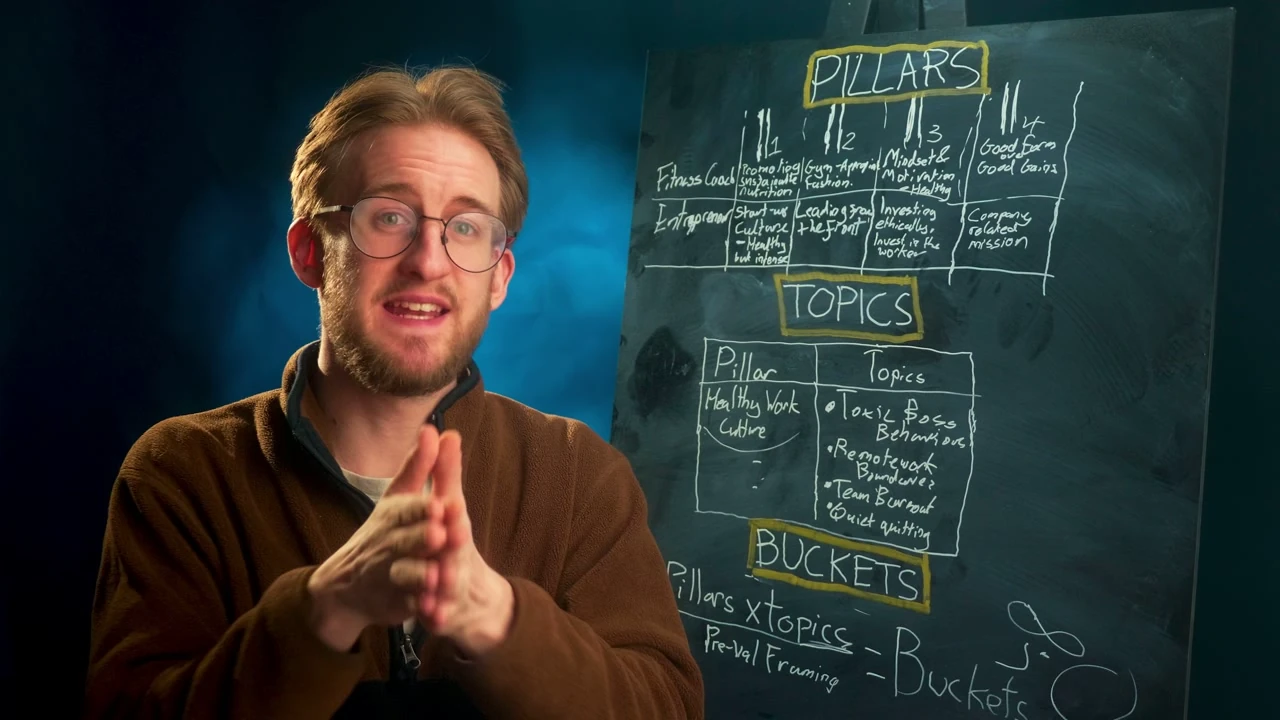 PILLARS
1 2 3 4
Fitness Coach
Promoting
sustainable
nutrition
Gym-
Fashion.
Mindset &
Motivation
Healthy
Good Form
over
Good Gains
Start-up
Culture
- Healthy
but intense
Leading from
the front
Investing
ethically,
Invest in the
worker
Company
related
mission
TOPICS
Pillar Topics
Healthy Work
Culture
• Toxic Boss
Behaviours
• Remote work
• Team Burnout
• Quiet quitting
BUCKETS
Pillars x topics
Pre-Val Framing
= Buckets